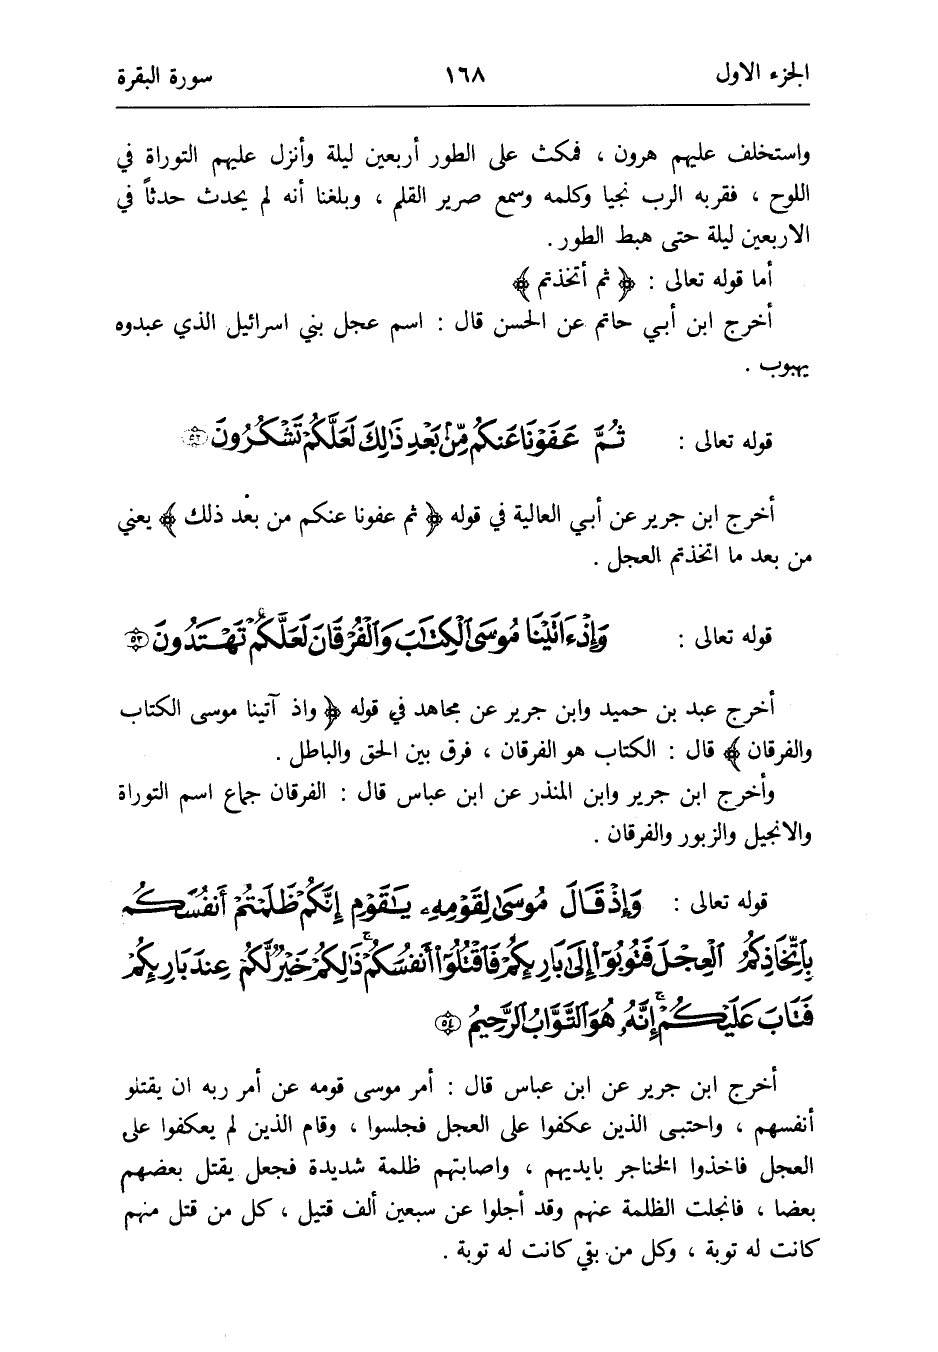 الجزء الاول ١٦٨ سورة البقرة
واستخلف عليهم هرون ، فمكث على الطور أربعين ليلة وأنزل عليهم التوراة في
اللوح ، فقربه الرب نجيا وكلمه وسمع صرير القلم ، وبلغنا أنه لم يحدث حدثاً في
الاربعين ليلة حتى هبط الطور .
أما قوله تعالى : ﴿ ثم أتخذتم ﴾
أخرج ابن أبي حاتم عن الحسن قال : اسم عجل بني اسرائيل الذي عبدوه
يهبوب .
قوله تعالى : ثُمَّ عَفَوْنَا عَنكُم مِّنۢ بَعْدِ ذَٰلِكَ لَعَلَّكُمْ تَشْكُرُونَ ۝٥٢
أخرج ابن جرير عن أبي العالية في قوله ﴿ ثم عفونا عنكم من بعْد ذلك ﴾ يعني
من بعد ما اتخذتم العجل .
قوله تعالى : وَإِذْ ءَاتَيْنَا مُوسَى ٱلْكِتَٰبَ وَٱلْفُرْقَانَ لَعَلَّكُمْ تَهْتَدُونَ ۝٥٣
أخرج عبد بن حميد وابن جرير عن مجاهد في قوله ﴿ واذ آتينا موسى الكتاب
والفرقان ﴾ قال : الكتاب هو الفرقان ، فرق بين الحق والباطل .
وأخرج ابن جرير وابن المنذر عن ابن عباس قال : الفرقان جماع اسم التوراة
والانجيل والزبور والفرقان .
قوله تعالى : وَإِذْ قَالَ مُوسَىٰ لِقَوْمِهِۦ يَٰقَوْمِ إِنَّكُمْ ظَلَمْتُمْ أَنفُسَكُم
بِٱتِّخَاذِكُمُ ٱلْعِجْلَ فَتُوبُوٓا۟ إِلَىٰ بَارِئِكُمْ فَٱقْتُلُوٓا۟ أَنفُسَكُمْ ذَٰلِكُمْ خَيْرٌ لَّكُمْ عِندَ بَارِئِكُمْ
فَتَابَ عَلَيْكُمْ ۚ إِنَّهُۥ هُوَ ٱلتَّوَّابُ ٱلرَّحِيمُ ۝٥٤
أخرج ابن جرير عن ابن عباس قال : أمر موسى قومه عن أمر ربه ان يقتلو
أنفسهم ، واحتبى الذين عكفوا على العجل فجلسوا ، وقام الذين لم يعكفوا على
العجل فاخذوا الخناجر بايديهم ، واصابتهم ظلمة شديدة فجعل يقتل بعضهم
بعضا ، فانجلت الظلمة عنهم وقد أجلوا عن سبعين ألف قتيل ، كل من قتل منهم
كانت له توبة ، وكل من بقي كانت له توبة .